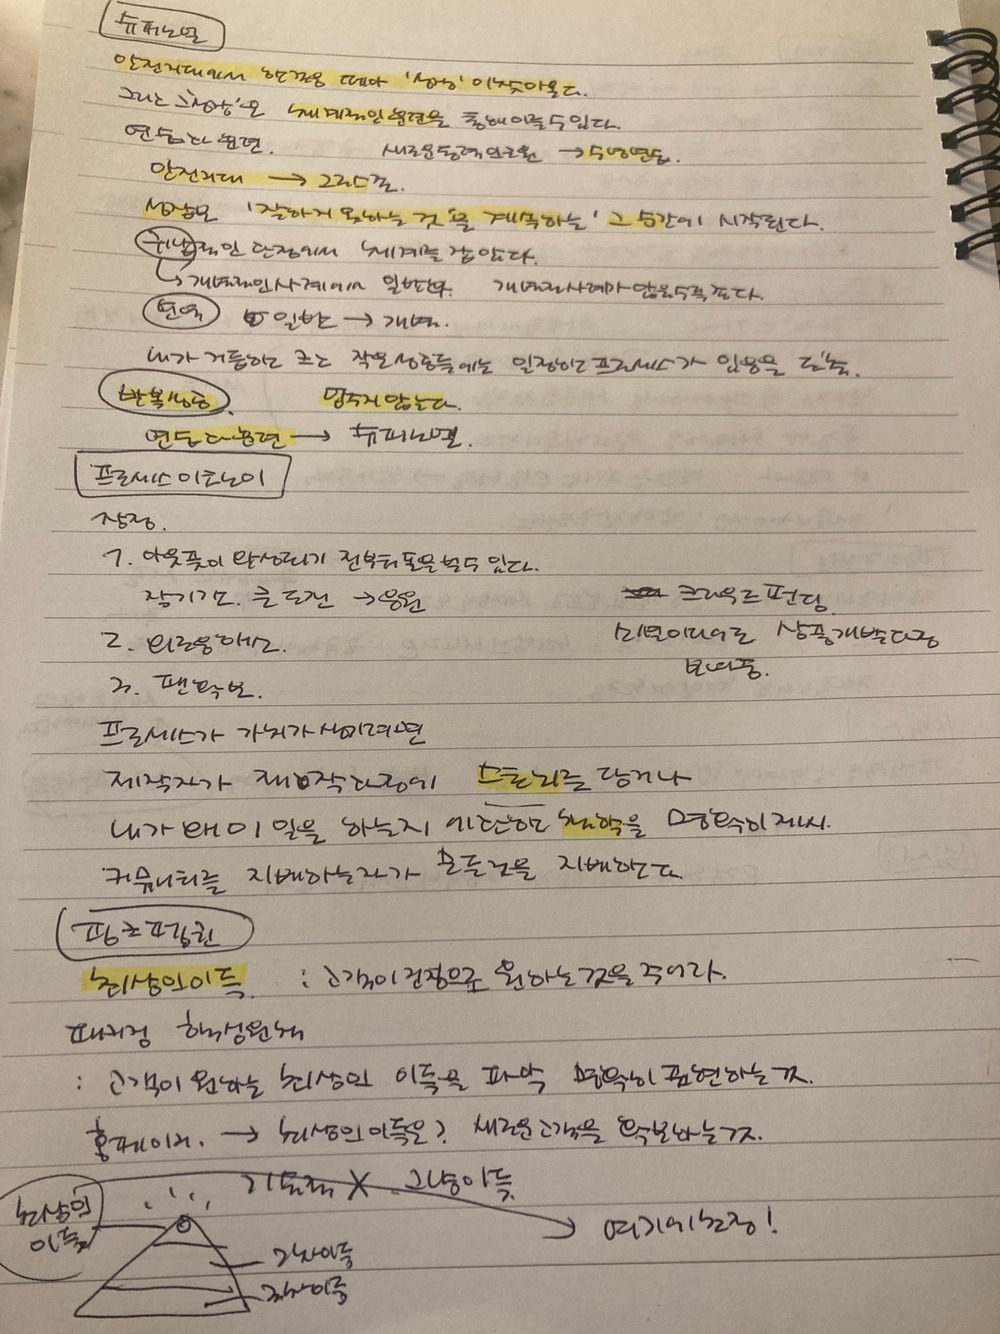 슈퍼노멀
안전지대에서 한걸음 뗄때마다 '성장'이 찾아온다.
그리는 '성장'은 체계적인 훈련을 통해 이룰 수 있다.
연습과 훈련. 새로운 능력의 근원 → 수많은 연습.
안전지대 → 고리즈존.
성장은 '잘하지 못하는 것'을 계속하는' 그 순간에 시작된다.
귀납적인 단정에서 체계를 잡았다.
↳ 개별적인 사례에서 일반화. 개별적 사례가 많을수록 좋다.
연역 일반 → 개별.
내가 거듭하는 크는 작은 성공들에는 일정한 프로세스가 있음을
반복성공. 멈추지 않는다.
연습과 훈련 → 슈퍼노멀.
프로세스 이코노미
장점.
1. 아웃풋이 완성되기 전부터 돈을 벌 수 있다.
장기기간. 큰 도전 → 응원 크라우드 펀딩.
2. 외로움 해소. 상품개발과정
보여줌.
3. 팬 확보.
프로세스가 가치가 생기려면
제작자가 제작과정에 스토리를 담거나
내가 왜 이 일을 하는지에 대한 철학을 명확히 제시.
커뮤니티를 지배하는 자가 모든 것을 지배한다.
최상의 이득 : 고객이 진정으로 원하는 것을 주어라.
패키징 핵심원칙
: 고객이 원하는 최상의 이득을 파악 명확히 표현하는 것.
홈페이지. → 최상의 이득은? 새로운 고객을 확보하는 것.
최상의 이득
기능적 X 그냥 이득
여기에 초점!
2차이득
1차이득